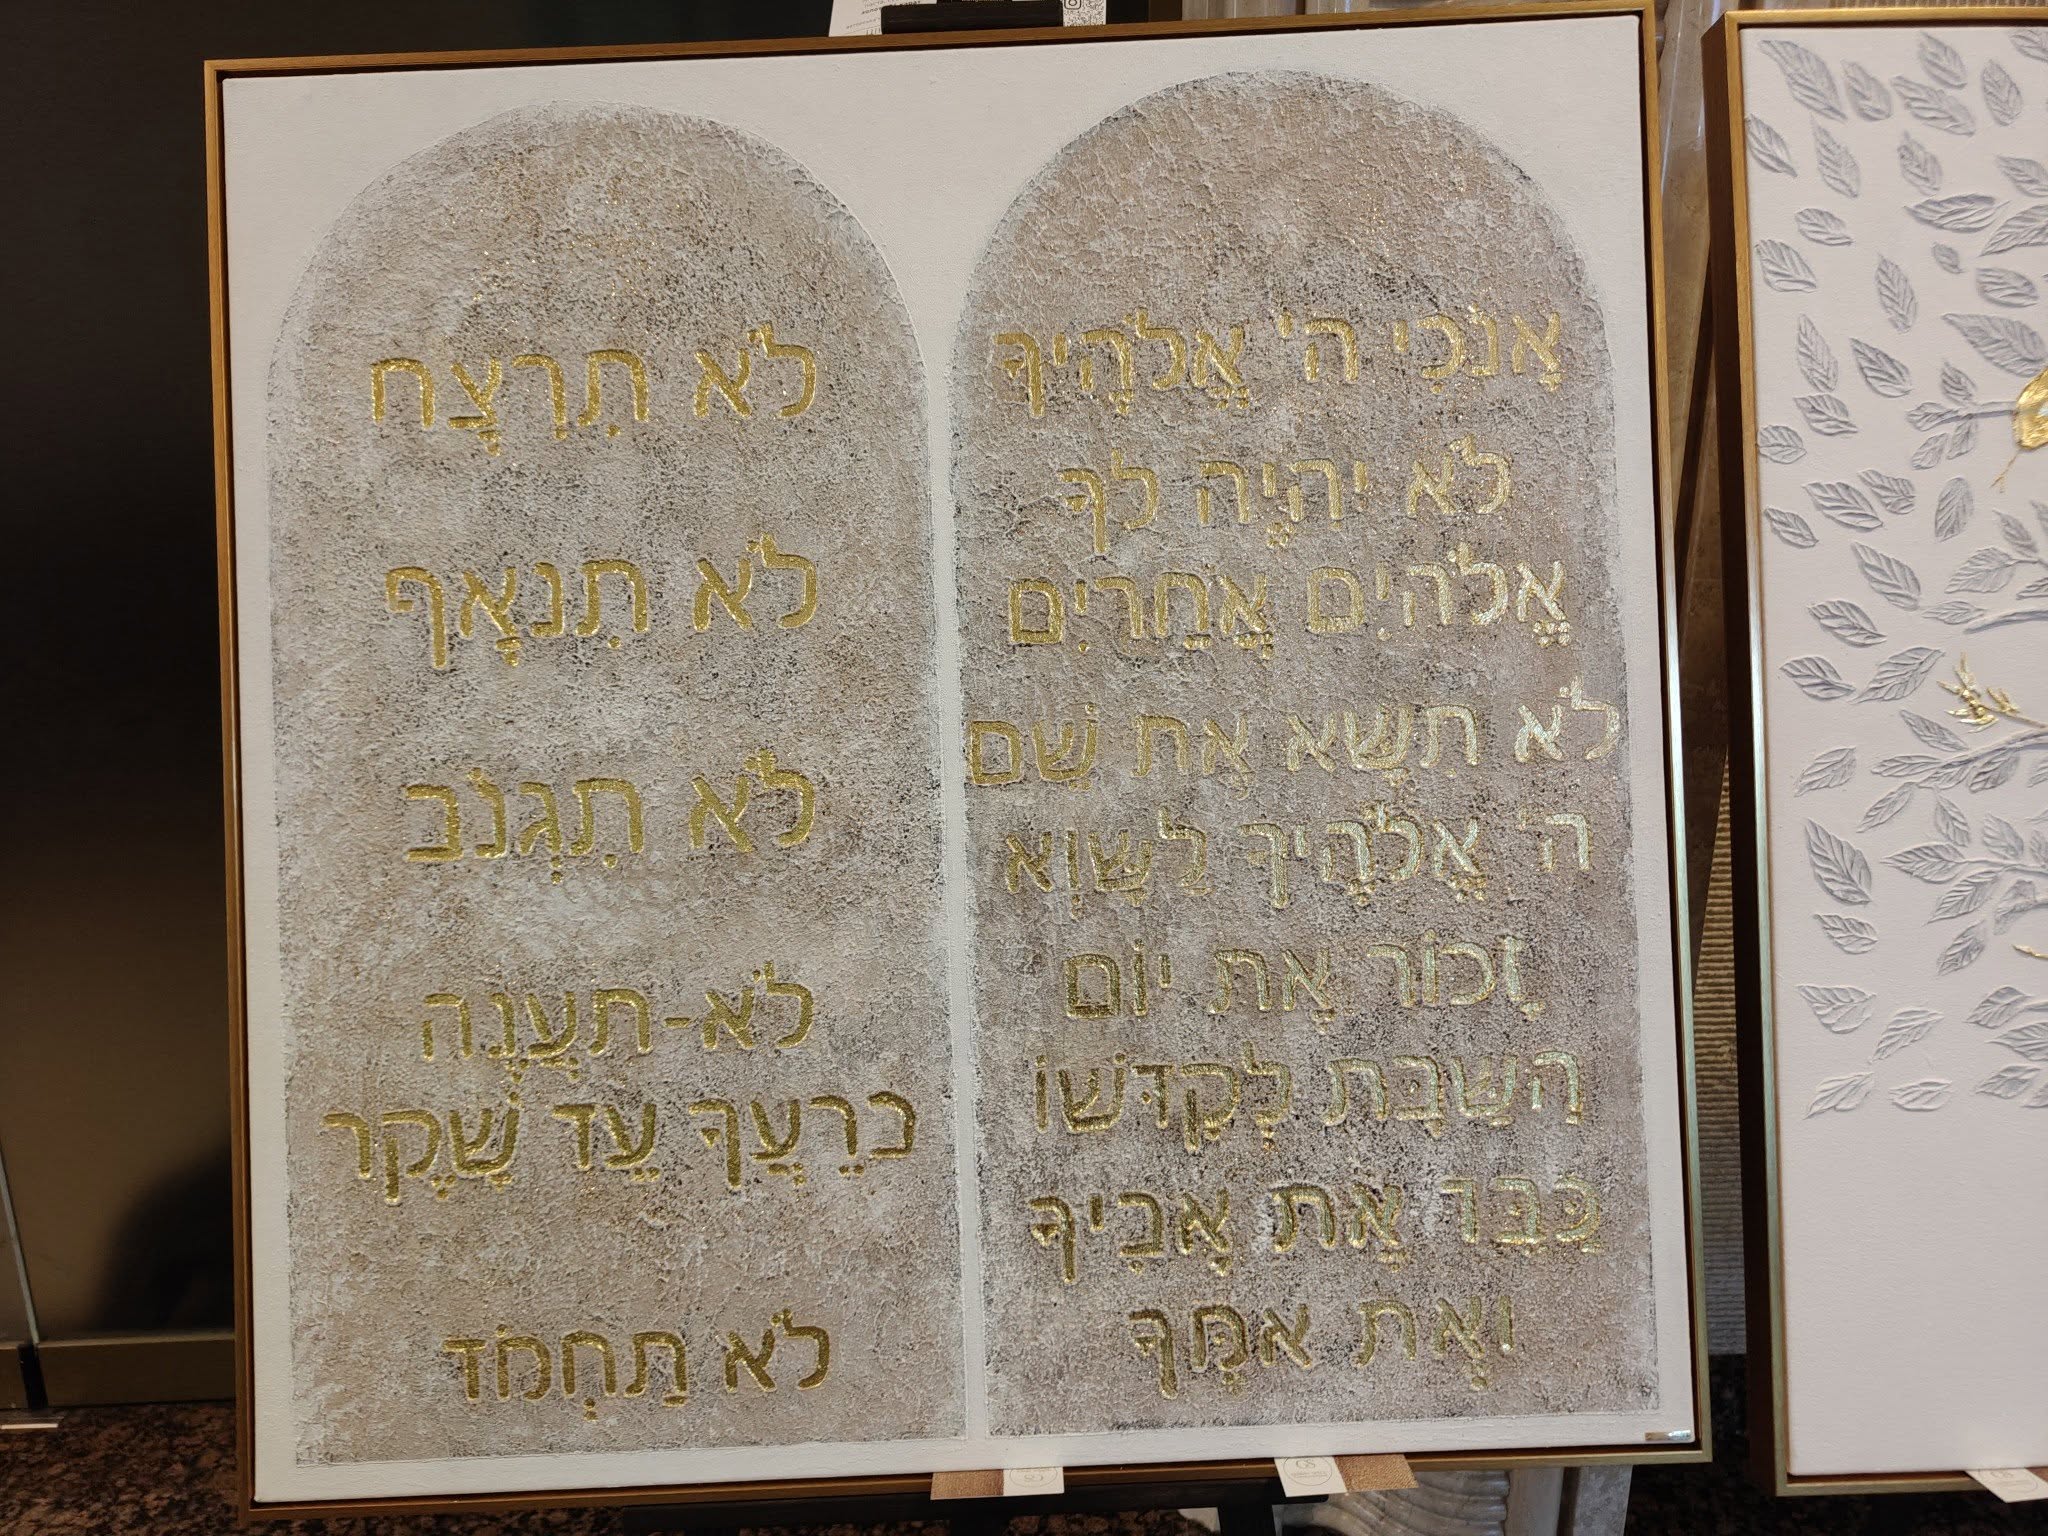 אָנֹכִי ה' אֱלֹהֶיךָ
לֹא יִהְיֶה לְךָ
אֱלֹהִים אֲחֵרִים
לֹא תִשָּׂא אֶת שֵׁם
ה' אֱלֹהֶיךָ לַשָּׁוְא
זָכוֹר אֶת יוֹם
הַשַּׁבָּת לְקַדְּשׁוֹ
כַּבֵּד אֶת אָבִיךָ
וְאֶת אִמֶּךָ
לֹא תִּרְצָח
לֹא תִנְאָף
לֹא תִגְנֹב
לֹא-תַעֲנֶה
בְרֵעֲךָ עֵד שָׁקֶר
לֹא תַחְמֹד